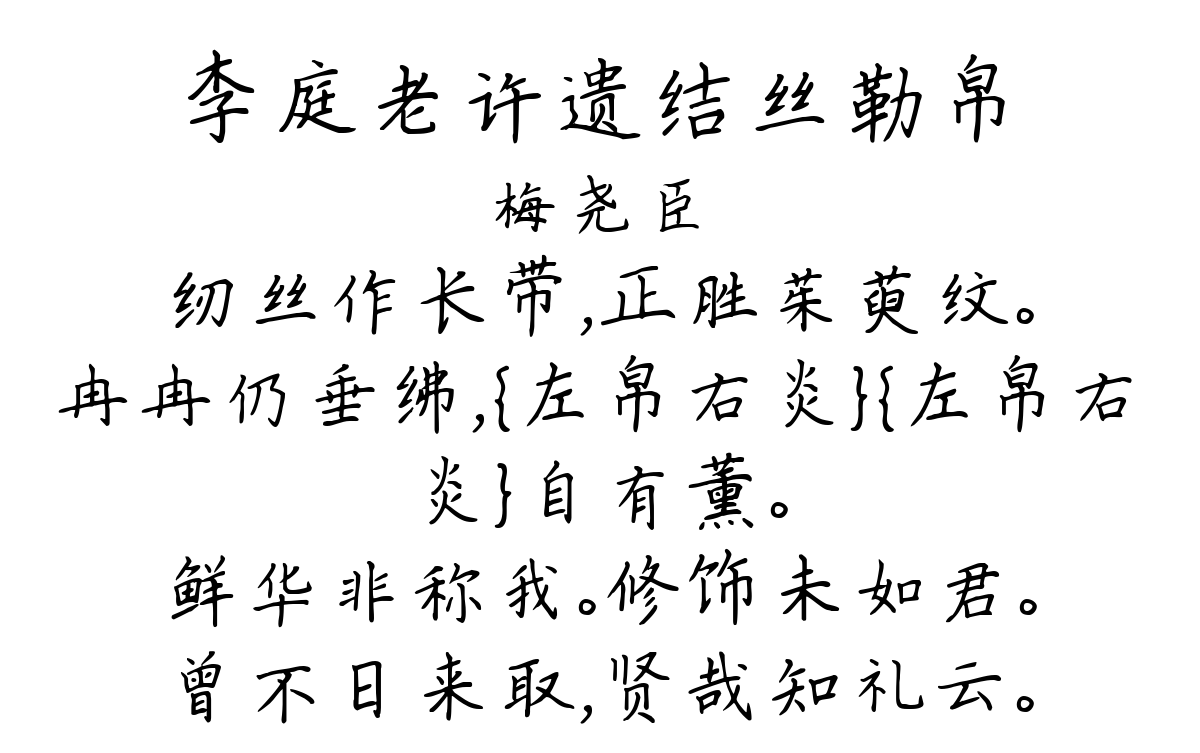 李庭老许遗结丝勒帛
梅尧臣
纫丝作长带,正胜茱萸纹。
冉冉仍垂绋,{左帛右炎}{左帛右
炎}自有薰。
鲜华非称我。修饰未如君。
曾不日来取,贤哉知礼云。